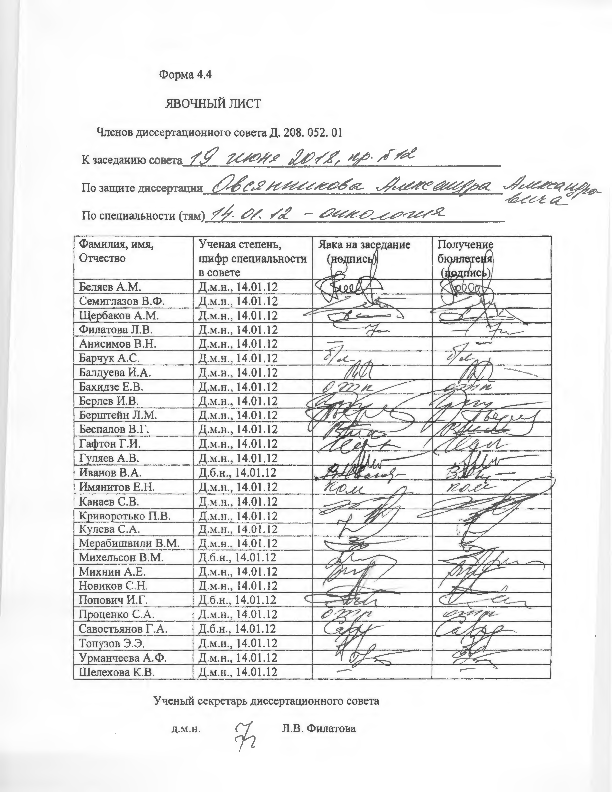 Форма 4.4
ЯВОЧНЫЙ ЛИСТ
Членов диссертационного совета Д. 208. 052. 01
К заседанию совета 19 июня 2018, пр. №12
По защите диссертации Овсянникова Александра Александро-
вича
По специальности (тям) 14.01.12 – онкология
Фамилия, имя, Отчество Ученая степень, шифр специальности в совете Явка на заседание (подпись) Получение бюллетеня (подпись)
Беляев А.М. Д.м.н., 14.01.12
Семиглазов В.Ф. Д.м.н., 14.01.12
Щербаков А.М. Д.м.н., 14.01.12
Филатова Л.В. Д.м.н., 14.01.12
Анисимов В.Н. Д.м.н., 14.01.12 — —
Барчук А.С. Д.м.н., 14.01.12 б/л б/л
Балдуева И.А. Д.м.н., 14.01.12
Бахидзе Е.В. Д.м.н., 14.01.12 отп отп
Берлев И.В. Д.м.н., 14.01.12
Берштейн Л.М. Д.м.н., 14.01.12
Беспалов В.Г. Д.м.н., 14.01.12
Гафтон Г.И. Д.м.н., 14.01.12
Гуляев А.В. Д.м.н., 14.01.12
Иванов В.А. Д.б.н., 14.01.12
Имянитов Е.Н. Д.м.н., 14.01.12 ком ком
Канаев С.В. Д.м.н., 14.01.12
Криворотько П.В. Д.м.н., 14.01.12
Кулева С.А. Д.м.н., 14.01.12
Мерабишвили В.М. Д.м.н., 14.01.12
Михельсон В.М. Д.б.н., 14.01.12
Михнин А.Е. Д.м.н., 14.01.12
Новиков С.Н. Д.м.н., 14.01.12
Попович И.Г. Д.б.н., 14.01.12
Проценко С.А. Д.м.н., 14.01.12 отп отп
Савостьянов Г.А. Д.б.н., 14.01.12
Топузов Э.Э. Д.м.н., 14.01.12
Урманчеева А.Ф. Д.м.н., 14.01.12
Шелехова К.В. Д.м.н., 14.01.12 — —
Ученый секретарь диссертационного совета
д.м.н. Л.В. Филатова